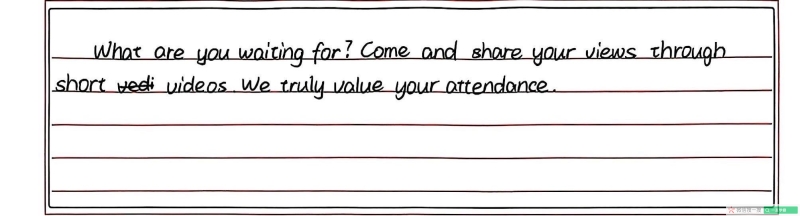 What are you waiting for? Come and share your views through
short vedi videos. We truly value your attendance.